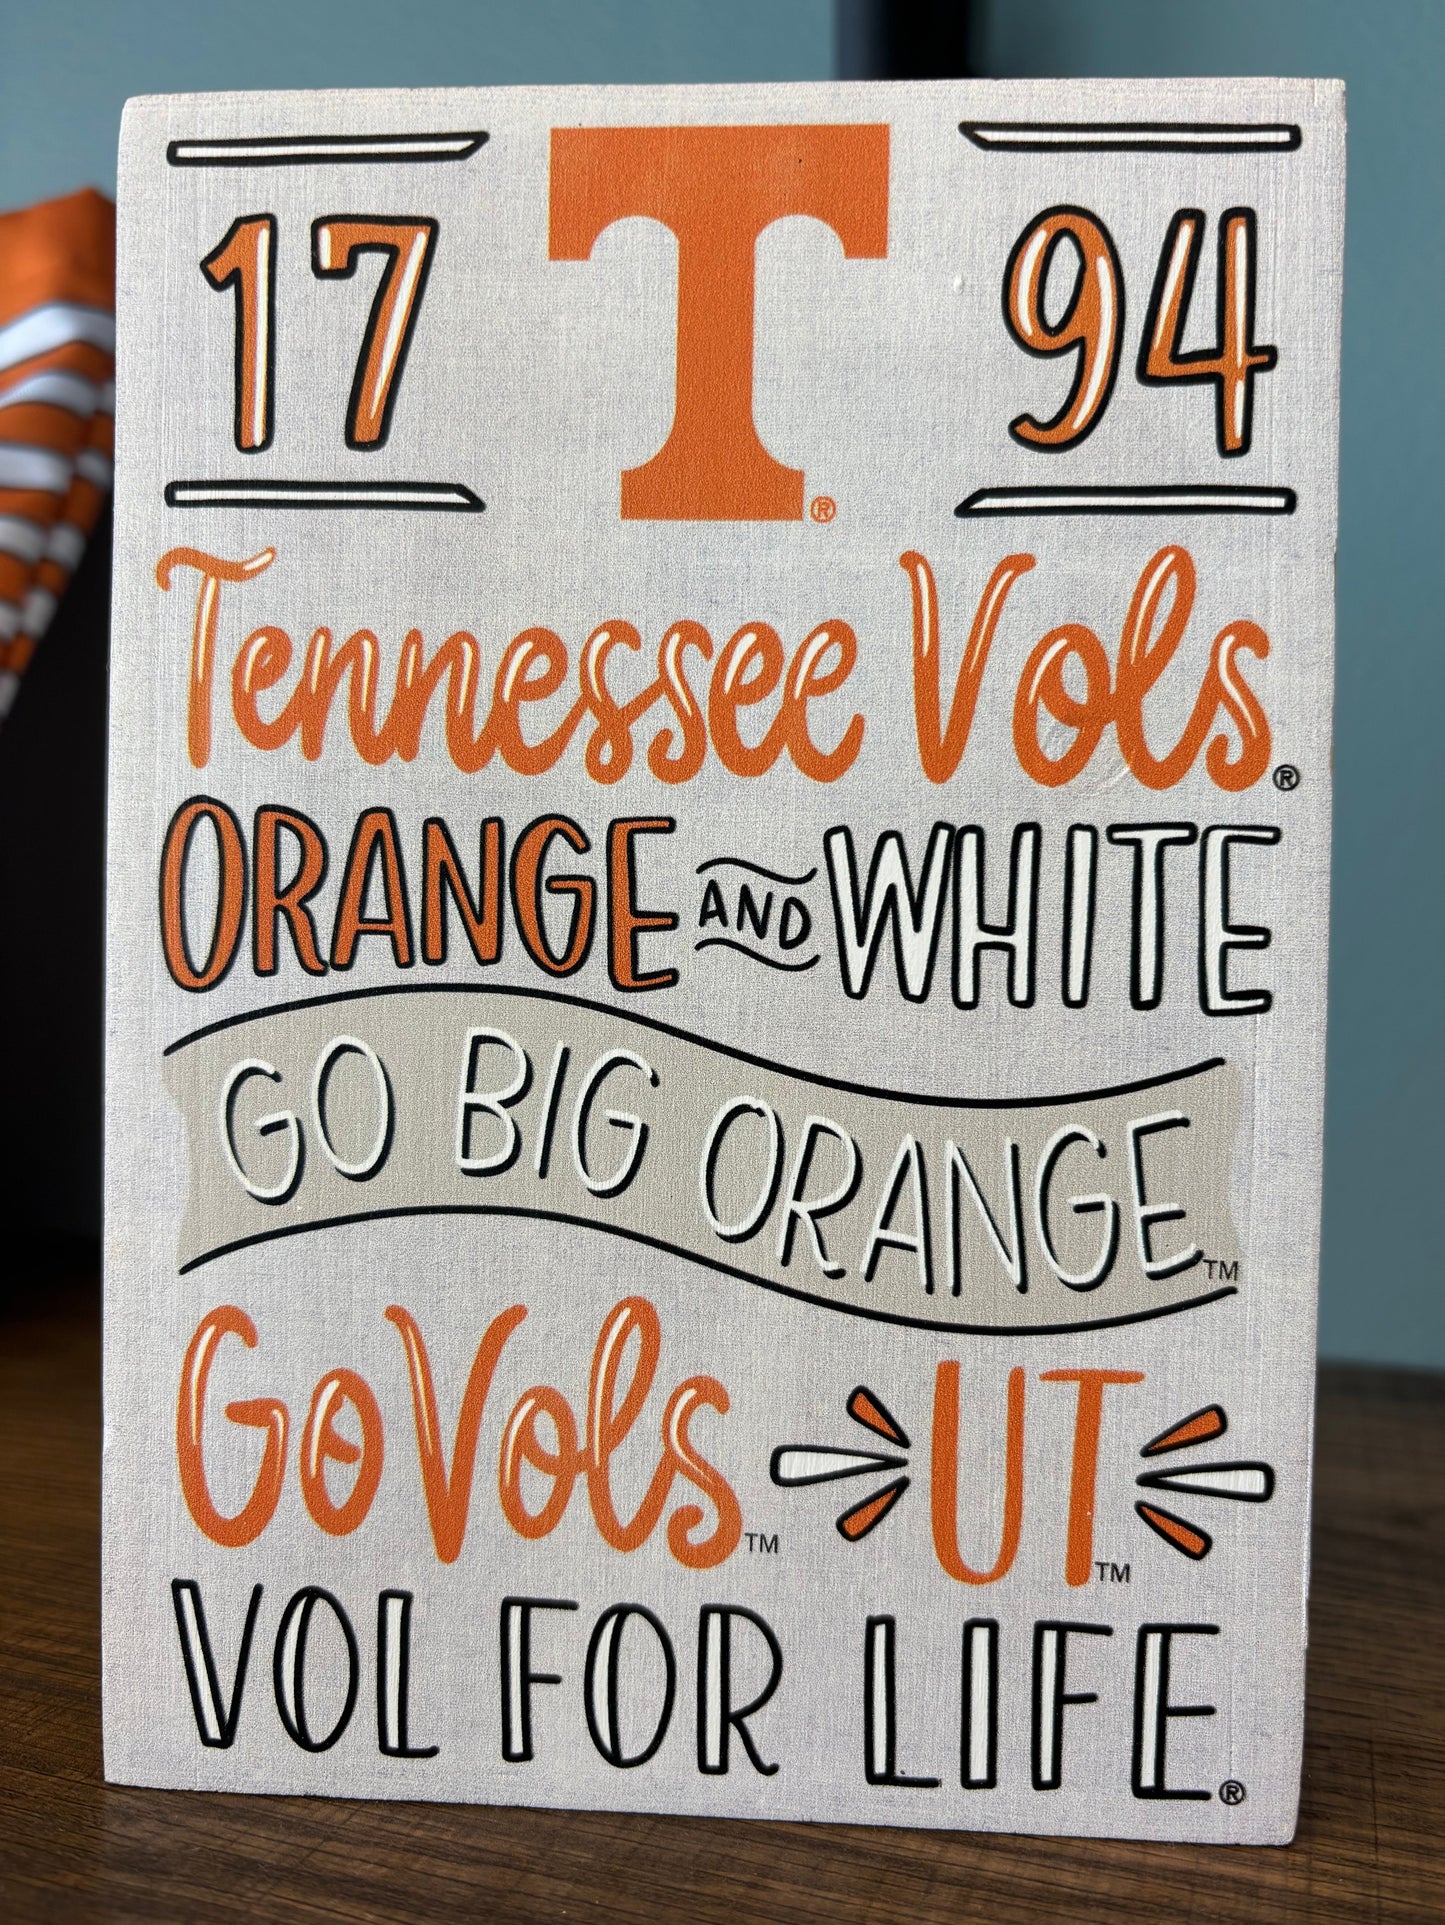 17 T® 94
Tennessee Vols®
ORANGE AND WHITE
GO BIG ORANGE™
Go Vols™ UT™
VOL FOR LIFE®